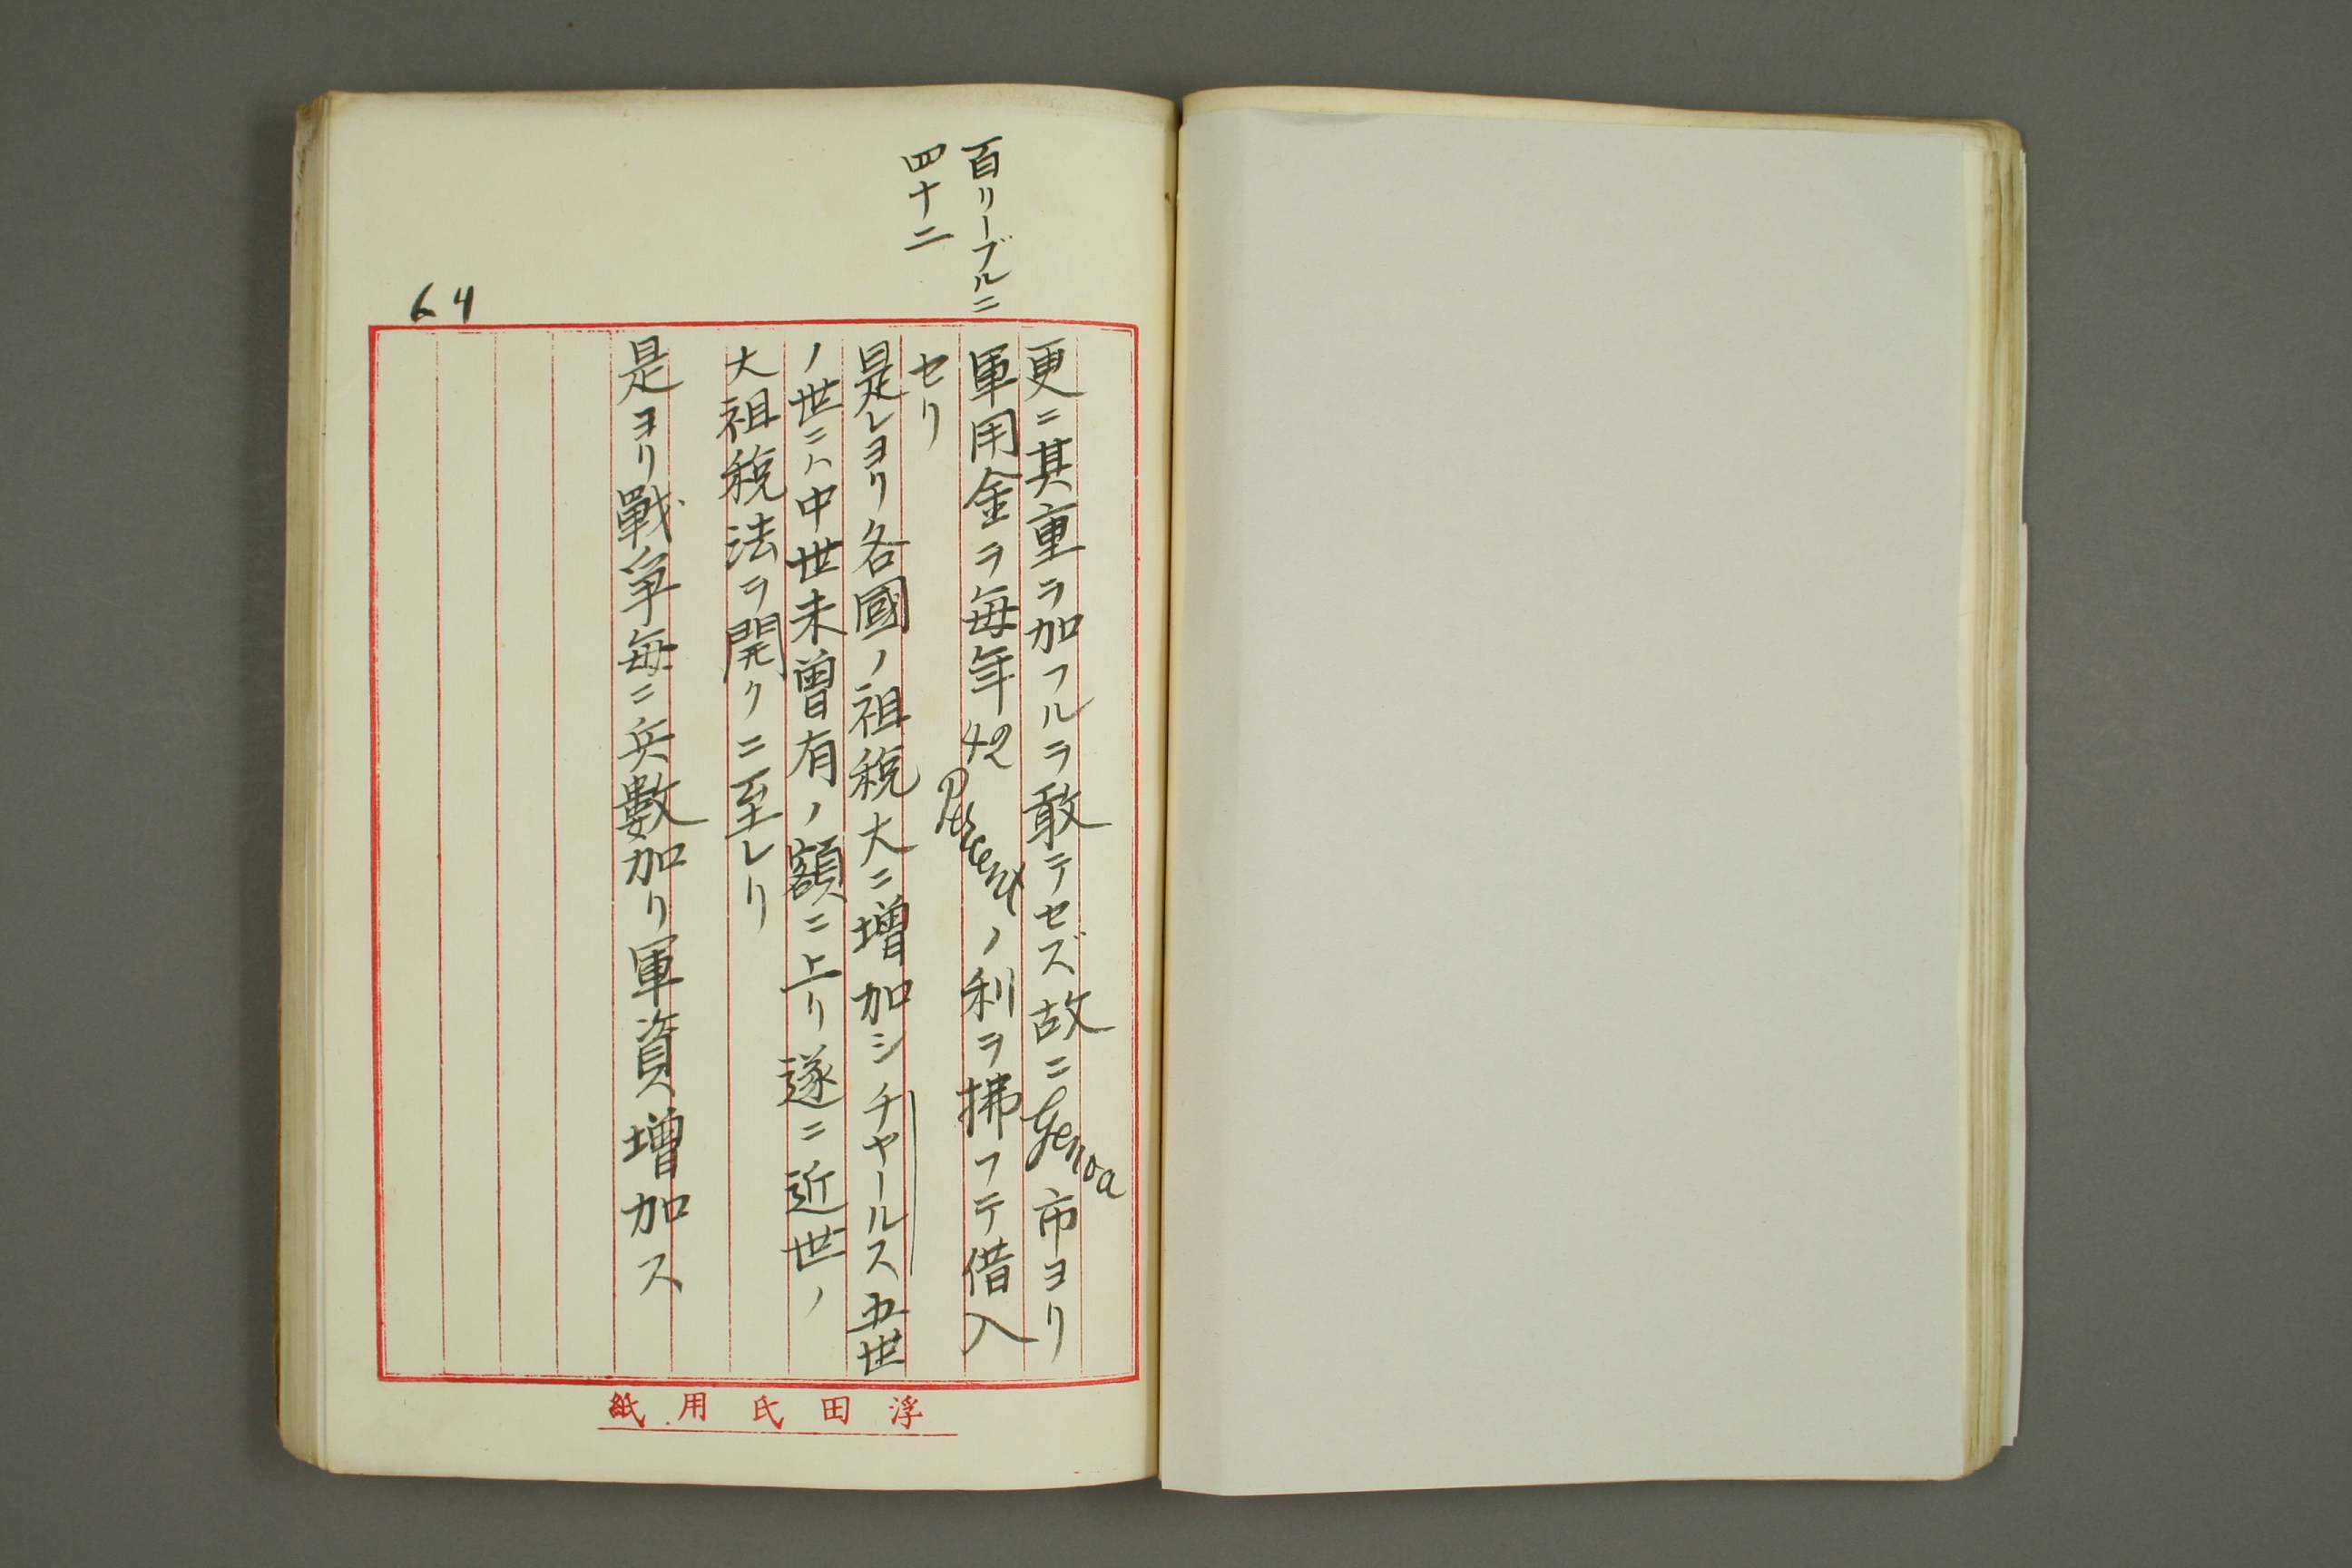 百リーブルニ
四十二
64
更ニ其重ヲ加フルヲ敢テセズ故ニGenoa市ヨリ
軍用金ヲ毎年42 Percentノ利ヲ拂フテ借入
セリ
是レヨリ各國ノ祖税大ニ増加シチャールス五世
ノ世ニハ中世未曽有ノ額ニ上リ遂ニ近世ノ
大祖税法ヲ開クニ至レリ
是ヨリ戰爭毎ニ兵數加リ軍資増加ス
浮田氏用紙